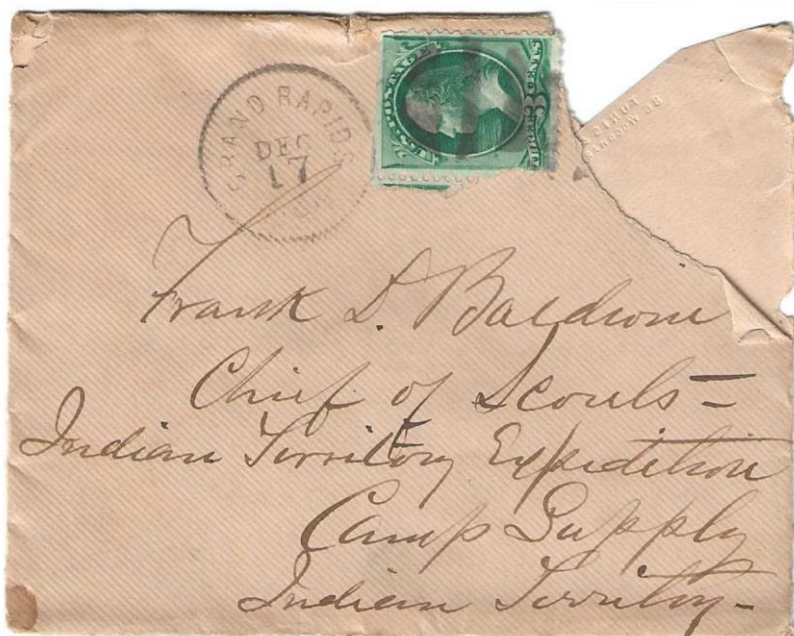 GRAND RAPIDS
DEC
17
U.S. POSTAGE
Frank D. Baldwin
Chief of Scouts =
Indian Territory Expedition
Camp Supply
Indian Territoy -